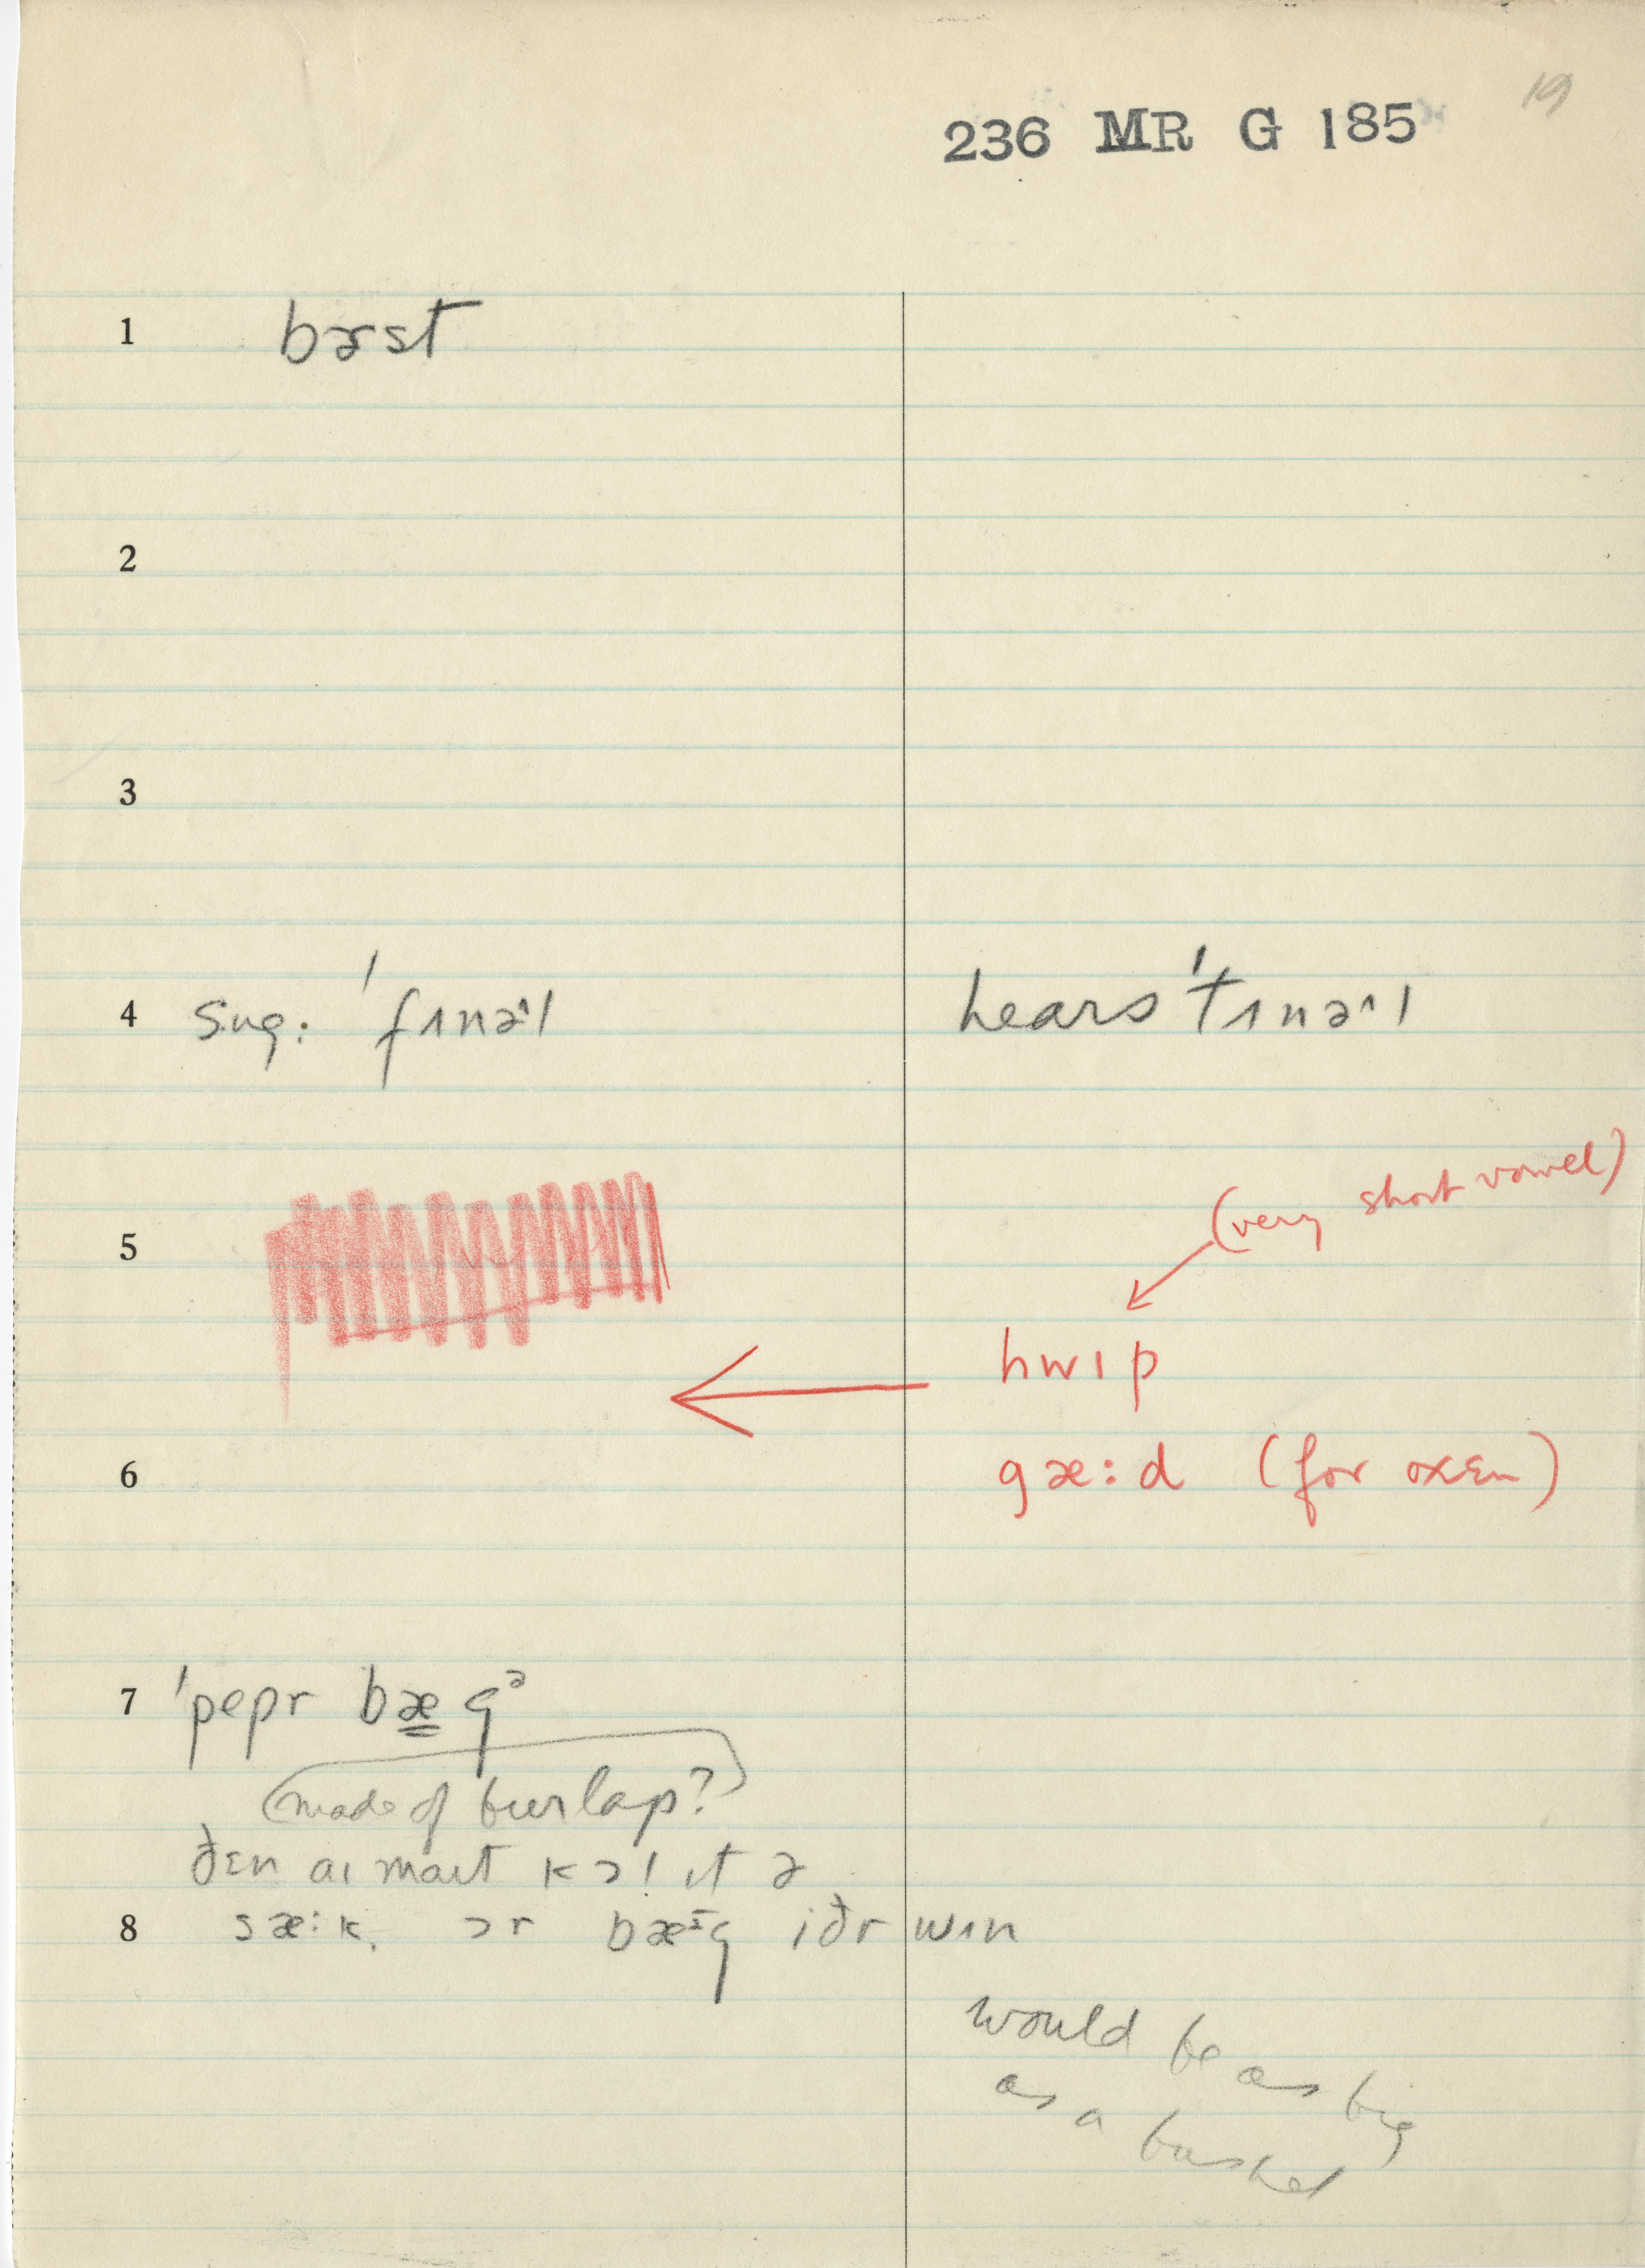 19
236 MR G 185
1 bɚst
2
3
4 sug: 'fɪnəˑl hears 'tɪnəˑl
(very short vowel)
5
hwɪp
6 gæ:d (for oxen)
7 'pepr bægᵊ
(made of burlap?)
ðɛn aɪ maɪt kɔl ɪt ə
8 sæ:k, ɔr bæᶦg iðr wɪn
would be as big
as a bushel